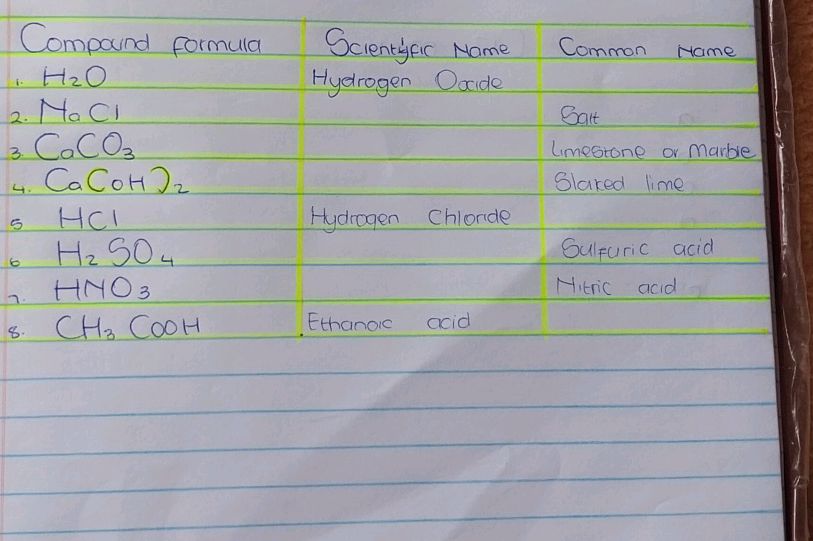 Compound formula Scientific Name Common Name
1. H2O Hydrogen Oxide
2. NaCl Salt
3. CaCO3 Limestone or Marble
4. Ca(OH)2 Slaked lime
5 HCl Hydrogen Chloride
6 H2SO4 Sulfuric acid
7. HNO3 Nitric acid
8. CH3COOH Ethanoic acid